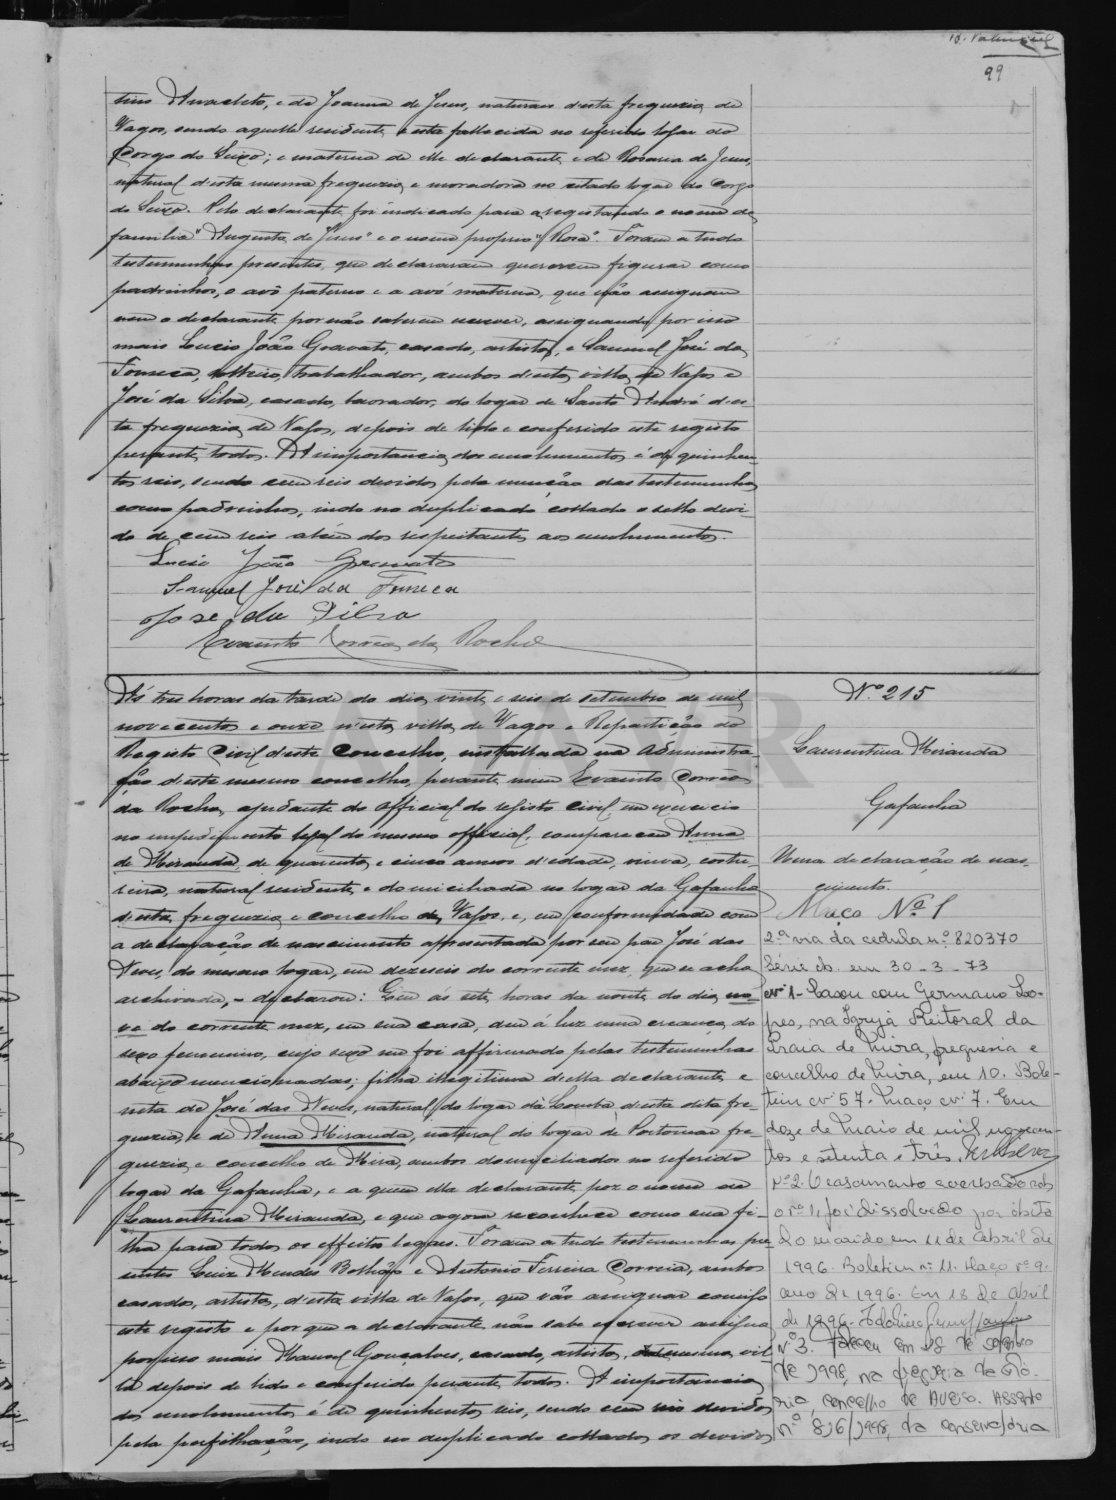 99
tino Anacleto, e de Joanna de Jesus, naturaes d'esta freguezia de
Vagos, sendo aquelle residente e esta fallecida no referido logar do
Corgo do Seixo; e materna de elle declarante e de Rosaria de Jesus,
natural d'esta mesma freguezia e moradora no citado logar do Corgo
do Seixo. Pelo declarante foi indicado para a registanda o nome de
familia "Augusta de Jesus" e o nome proprio "Rosa". Foram a tudo
testemunhas presentes, que declararam quererem figurar como
padrinhos, o avô paterno e a avó materna, que não assignam
nem o declarante por não saberem escrever, assignando por isso
mais Lucio João Gravato, casado, artista, e Samuel José da
Fonseca, solteiro, trabalhador, ambos d'esta villa de Vagos e
José da Silva, casado, lavrador, do logar de Santo André d'es-
ta freguezia de Vagos, depois de lido e conferido este registo
perante todos. A importancia dos emolumentos é de quinhen-
tos reis, sendo cem reis devidos pela menção das testemunhas
como padrinhos, indo no duplicado collado o sello devi-
do de cem reis além dos respeitantes aos emolumentos.
Lucio João Gravato
Samuel José da Fonseca
Jose da Silva
Evaristo Corrêa da Rocha
Ás tres horas da tarde do dia vinte e seis de setembro de mil
novecentos e onze n'esta villa de Vagos e Repartição do
Registo Civil d'este concelho, installada na Administra-
ção d'este mesmo concelho, perante mim Evaristo Corrêa
da Rocha, ajudante do official do registo civil em exercicio
no impedimento legal do mesmo official, compareceu Anna
de Miranda, de quarenta e cinco annos d'edade, viuva, costu-
reira, natural residente e domiciliada no logar da Gafanha
d'esta freguezia e concelho de Vagos, e, em conformidade com
a declaração de nascimento apresentada por seu pae José das
Neves, do mesmo logar, em dezeseis do corrente mez, que se acha
archivada, - declarou: Que ás sete horas da noute do dia no-
ve do corrente mez, em sua casa, deu á luz uma creança do
sexo femenino, cujo sexo me foi affirmado pelas testemunhas
abaixo mencionadas; filha illegitima d'ella declarante e
neta de José das Neves, natural do logar da Lomba d'esta dita fre-
guezia, e de Anna Miranda, natural do logar de Portomar fre-
guezia e concelho de Mira, ambos domiciliados no referido
logar da Gafanha, e a quem ella declarante poz o nome de
Laurentina Miranda, e que agora reconhece como sua fi-
lha para todos os effeitos legaes. Foram a tudo testemunhas pre-
sentes Luiz Mendes Bolhão e Antonio Ferreira Correia, ambos
casados, artistas, d'esta villa de Vagos, que vão assignar comigo
este registo e por que a declarante não sabe escrever assigna
por isso mais Manuel Gonçalves, casado, artista, mesma vil-
la depois de lido e conferido perante todos. A importancia
dos emolumentos é de quinhentos reis, sendo cem reis devidos
pela perfilhação, indo no duplicado collados os devidos
Nº 215
Laurentina Miranda
Gafanha
Uma declaração de nas-
cimento.
Maço Nº 1
2.ª via da cedula n.º 820370
Série em 30-3-73
Nº 1 - Casou com Germano Lo-
pes, na Igreja Reitoral da
Praia de Mira, freguesia e
concelho de Mira, em 10. Bole-
tim nº 57. Maço nº 7. Em
doze de Maio de mil novecen-
tos e setenta e três.
Nº 2. O casamento averbado sob
o nº 1, foi dissolvido por óbito
do marido em 11 de Abril de
1996. Boletim nº 11. Maço nº 9.
ano de 1996. Em 18 de Abril
de 1996.
Nº 3. Faleceu em 28 de
de 1998, na freguesia da Gló-
ria concelho de Aveiro. Assento
nº 816/1998, da conservatória